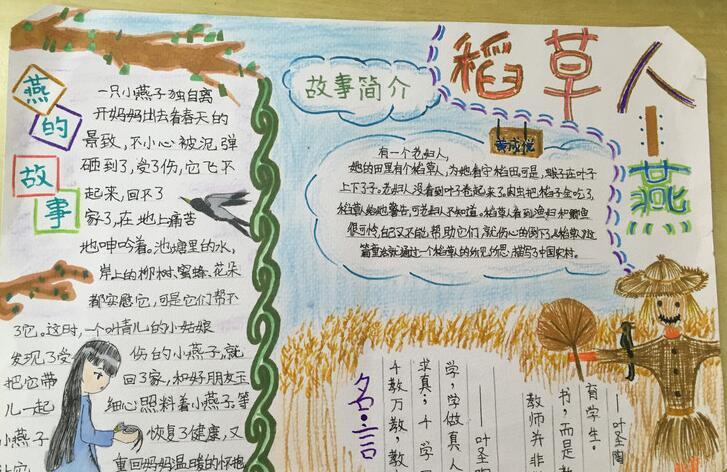 稻草人
燕
燕的故事
一只小燕子独自离
开妈妈出去看春天的
景致,不小心被泥弹
砸到了,受了伤,它飞不
起来,回不了
家了,在地上痛苦
地呻吟着。池塘里的水,
岸上的柳树,蜜蜂、花朵
都安慰它,可是它们帮不
了它。这时,一个叫青儿的小姑娘
发现了受伤的小燕子,就
把它带回了家,和好朋友玉
儿一起细心照料着小燕子。等
小燕子恢复了健康,又
重回妈妈温暖的怀抱
故事简介
有一个老妇人,
她的田里有个稻草人,为她看守稻田可是,蛾子在叶子
上下了子。老妇人没看到叶子卷起来了肉虫把稻子全吃了,
稻草人给她警告,可老妇人不知道。稻草人看到渔妇和鲫鱼
很可怜,自己又不能帮助它们,就伤心的倒下了
篇童话就通过一个稻草人的所见所思,描写了中国农村。
名言
育学生。
——叶圣陶
书,而是教
教师并非
——叶圣陶
学,学做真人
求真;千学
千教万教,教